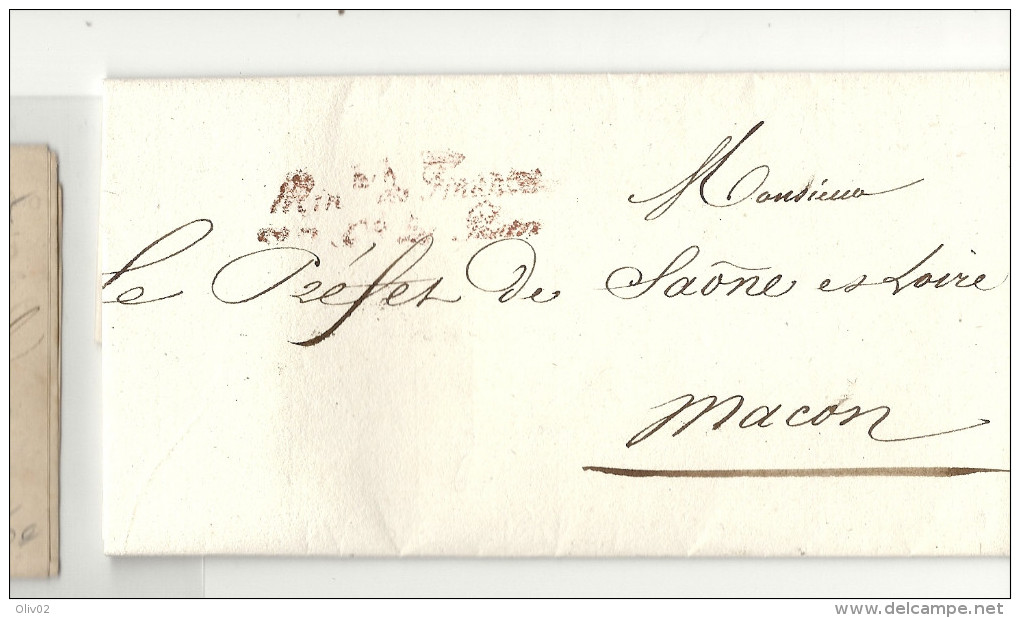 Min des Finances
Monsieur
Le Préfet de Saône et Loire
Macon
Oliv02
www.delcampe.net